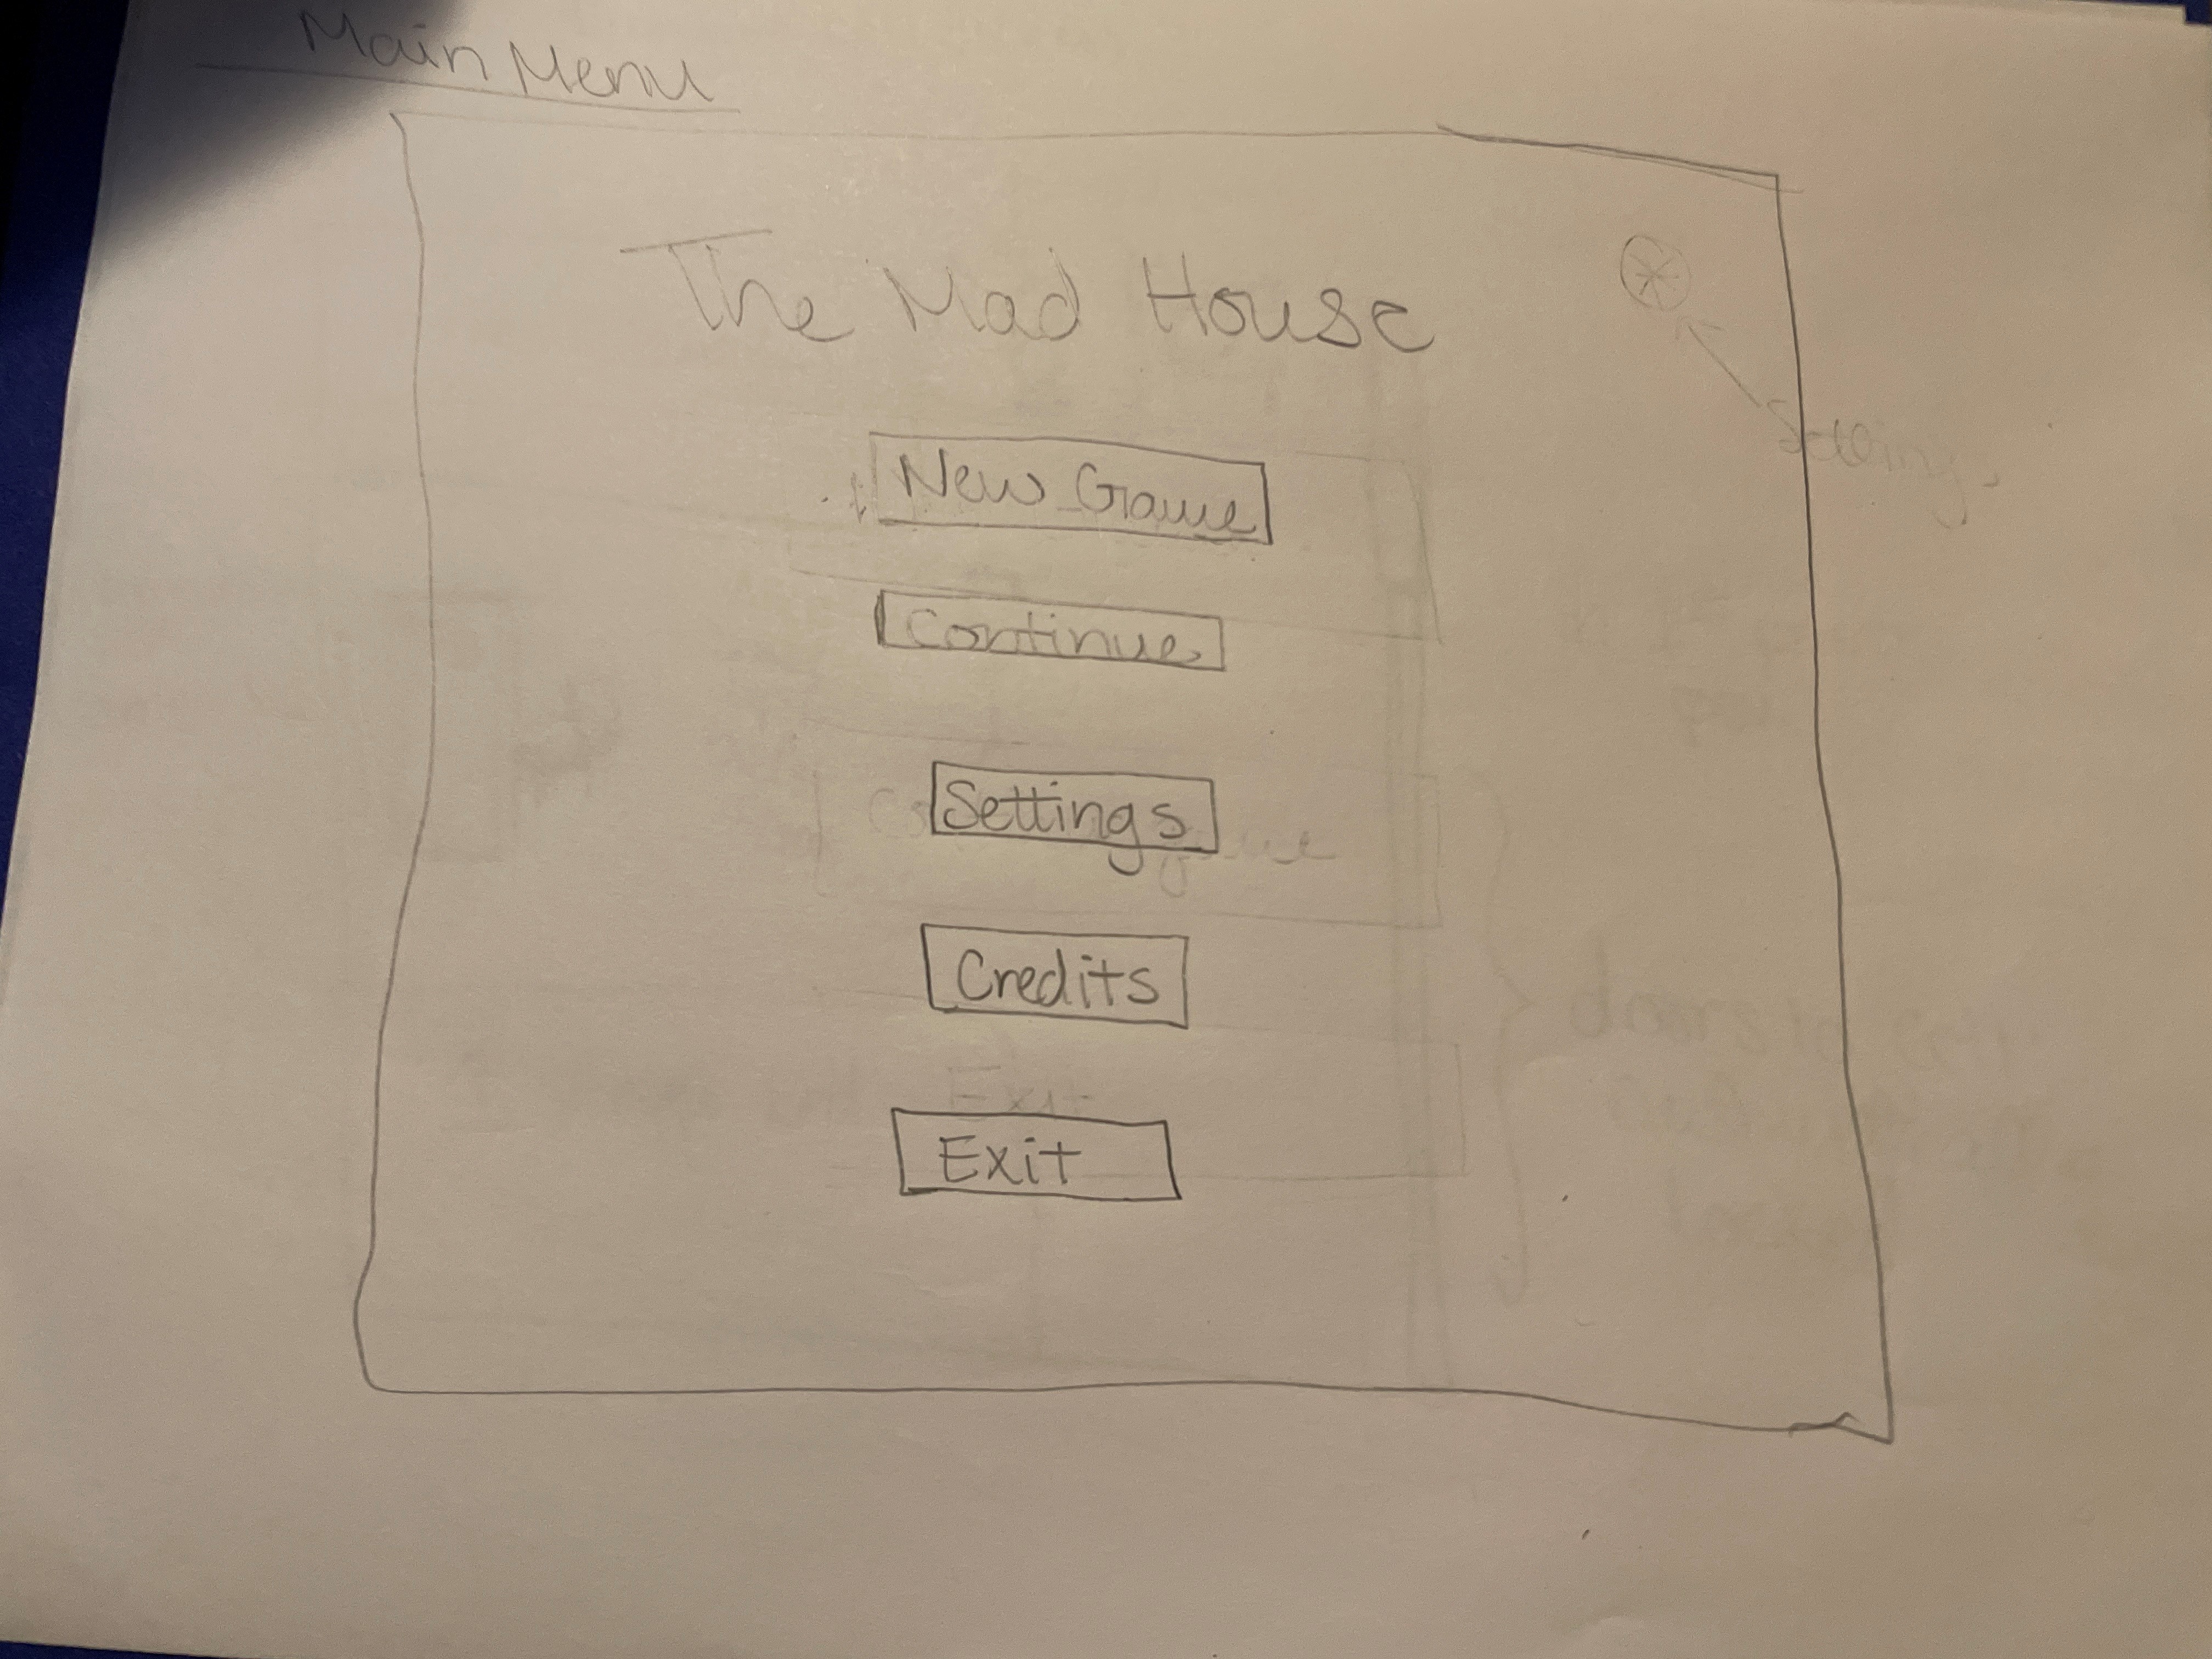 Main Menu
The Mad House
Settings
New Game
Continue
Settings
Credits
Exit
Exit